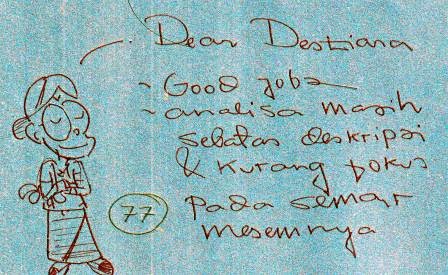 Dear Destiana
~ Good job ~
~ analisa masih
sebatas deskripsi
& kurang fokus
pada semar
mesemnya
77